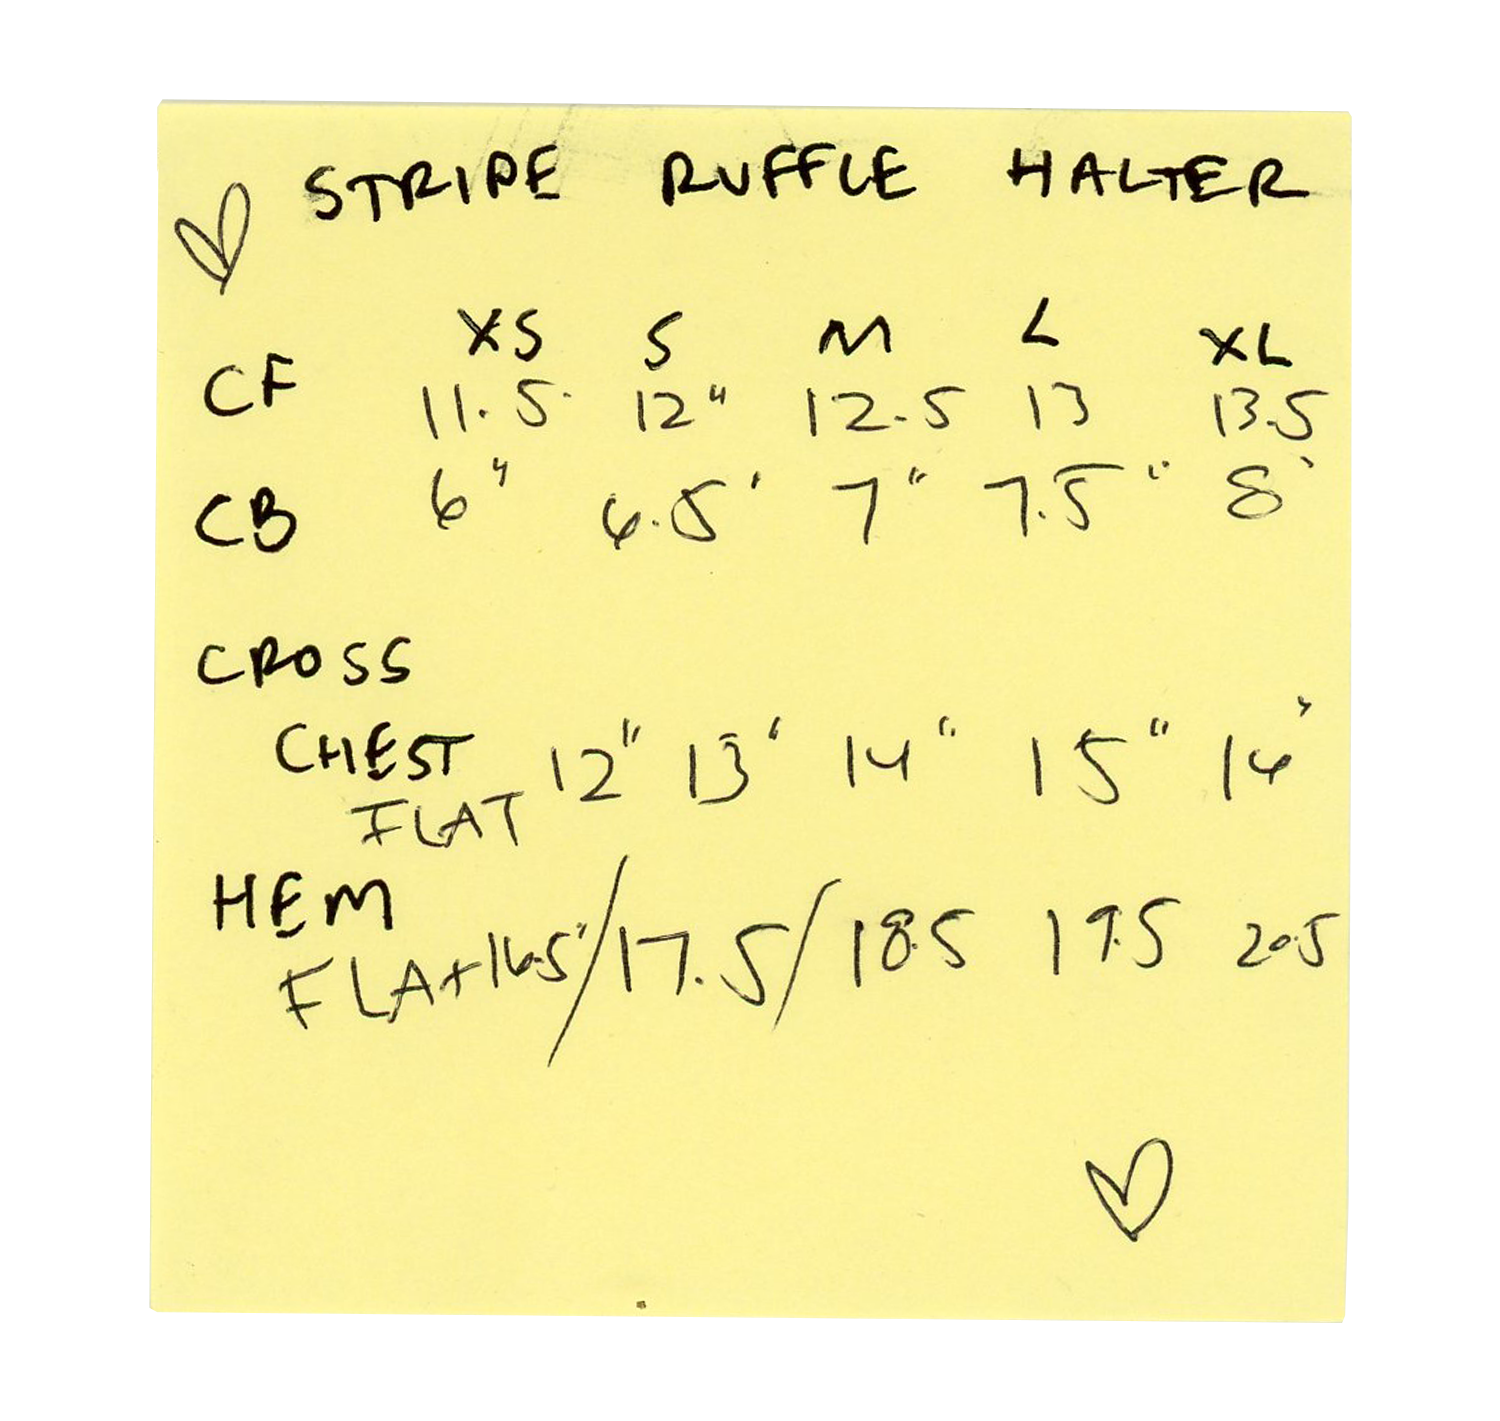 STRIPE RUFFLE HALTER
XS S M L XL
CF 11.5 12" 12.5 13 13.5
CB 6" 6.5' 7" 7.5" 8'
CROSS
CHEST 12" 13' 14" 15" 16'
FLAT
HEM
FLAt 16.5'/17.5/18.5 19.5 20.5